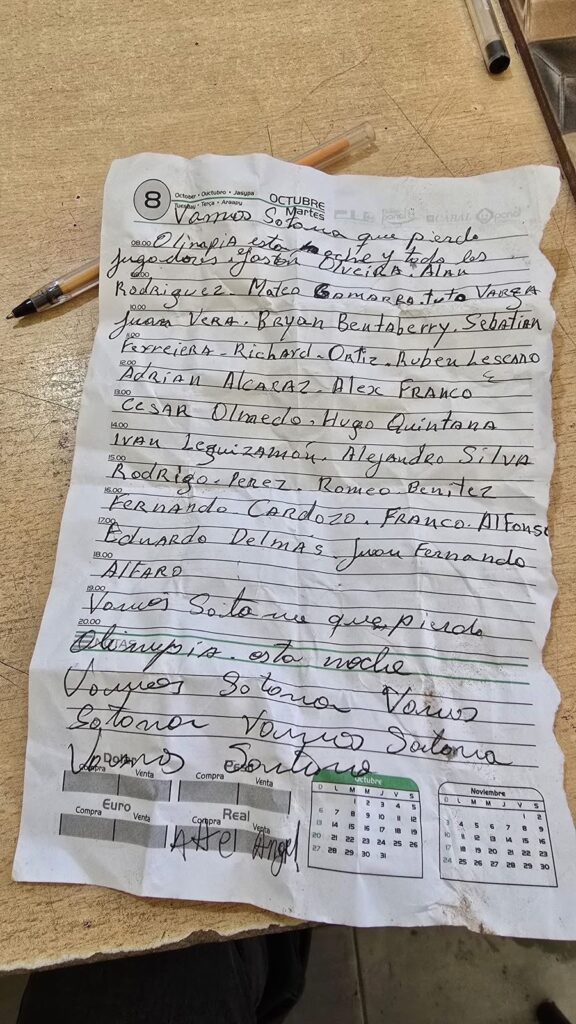 8 October • Outubro • Jasypa OCTUBRE
Tuesday • Terça • Araapy Martes
Vamos Satana que pierda
08.00 Olimpia esta noche y todo los
jugadores. Gastón Olveira. Alan
09.00
Rodriguez. Mateo Gamarra. tuto VARGA
10.00
Juan VERA. Bryan Bentaberry. Sebatian
11.00
Ferreiera - Richard - Ortiz. Ruben Lescano
12.00
Adrian Alcaraz. Alex Franco
13.00
CESAR Olmedo. Hugo Quintana
14.00
Ivan Leguizamón. Alejandro Silva
15.00
Rodrigo. Perez. Romeo Benitez
16.00
Fernando Cardozo. Franco. Alfonso
17.00
Eduardo Delmás. Juan Fernando
18.00
Alfaro
19.00
Vamos Satana que pierda
20.00
Olimpia. esta noche
Vamos Satana Vamos
Satana Vamos Satana
Vamos Santana
Dolar Peso
Compra Venta Compra Venta
Euro Real
Compra Venta Compra Venta
Angel
Octubre
D L M M J V S
1 2 3 4 5
6 7 8 9 10 11 12
13 14 15 16 17 18 19
20 21 22 23 24 25 26
27 28 29 30 31
Noviembre
D L M M J V S
1 2
3 4 5 6 7 8 9
10 11 12 13 14 15 16
17 18 19 20 21 22 23
24 25 26 27 28 29 30